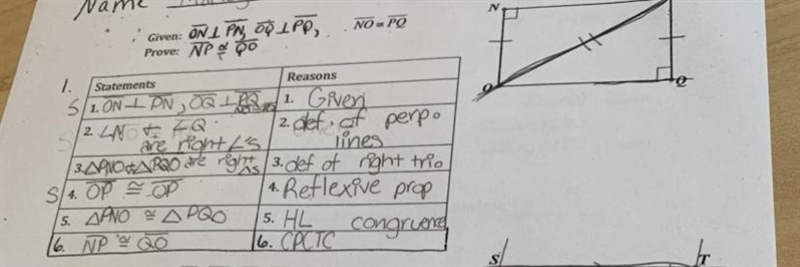 Name
Given: ON ⊥ PN, OQ ⊥ PQ, NO = PQ
Prove: NP ≅ QO
1.
Statements Reasons
S 1. ON ⊥ PN, OQ ⊥ PQ 1. Given
2. ∠N + ∠Q are right ∠'s 2. def. of perp. lines
3. △PNO + △PQO are right △s 3. def of right trio
S 4. OP ≅ OP 4. Reflexive prop
5. △PNO ≅ △PQO 5. HL congruence
6. NP ≅ QO 6. CPCTC
N
O
Q
S
T